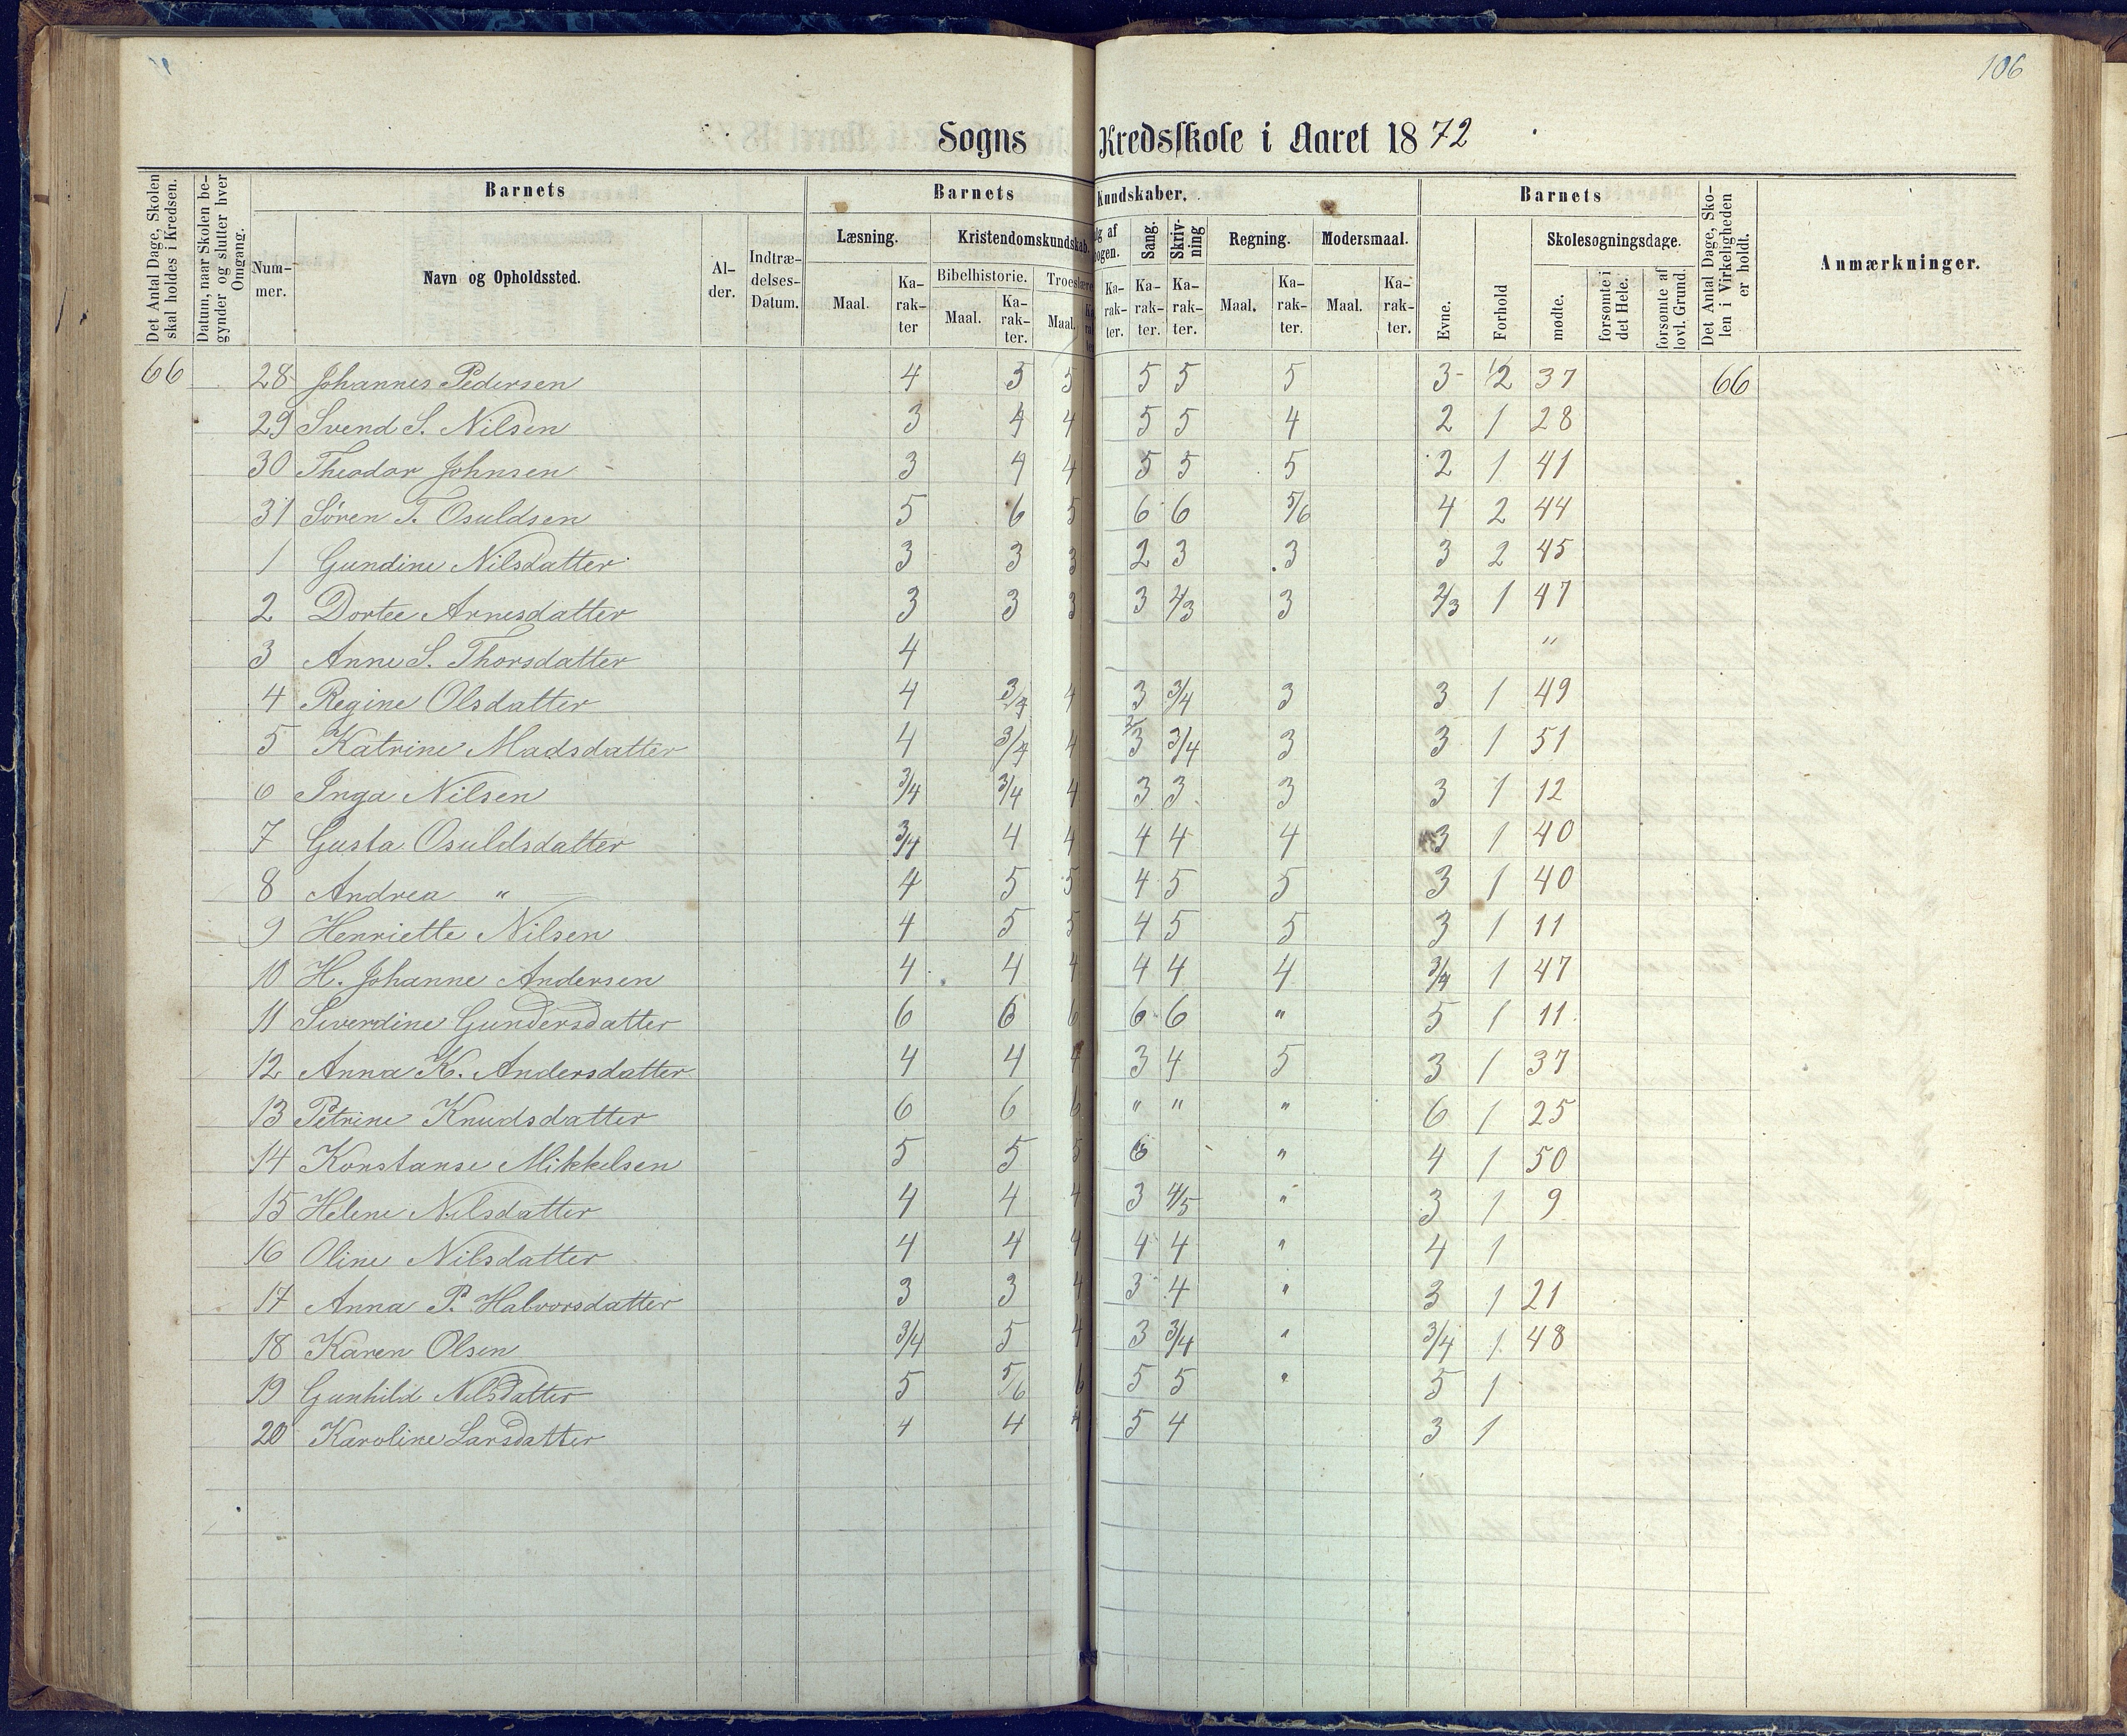 106
Sogns Kredsskole i Aaret 1872
Det Antal Dage, Skolen skal holdes i Kredsen.
Datum, naar Skolen begynder og slutter hver Omgang.
Barnets
Nummer.
Navn og Opholdssted.
Alder.
Indtrædelses-Datum.
Barnets Kundskaber.
Læsning.
Maal.
Karakter
Kristendomskundskab.
Bibelhistorie.
Maal.
Karakter.
Troeslære
Maal.
lg af ogen.
Karakter.
Sang.
Karakter.
Skrivning
Karakter.
Regning.
Maal.
Karakter.
Modersmaal.
Maal.
Karakter.
Barnets
Evne.
Forhold
Skolesøgningsdage.
mødte.
forsømte i det Hele.
forsømte af lovl. Grund.
Det Antal Dage, Skolen i Virkeligheden er holdt.
Anmærkninger.
66 28 Johannes Pedersen 4 5 5 5 5 5 3 1/2 37 66
29 Svend S. Nilsen 3 4 4 5 5 4 2 1 28
30 Theodor Johnsen 3 4 4 5 5 5 2 1 41
31 Søren T. Osuldsen 5 6 5 6 6 5/6 4 2 44
1 Gundine Nilsdatter 3 3 3 2 3 3 3 2 45
2 Dortee Arnesdatter 3 3 3 3 2/3 3 2/3 1 47
3 Anne S. Thorsdatter 4 "
4 Regine Olsdatter 4 3/4 4 3 3/4 3 3 1 49
5 Katrine Madsdatter 4 3/4 4 2/3 3/4 3 3 1 51
6 Inga Nilsen 3/4 3/4 4 3 3 3 3 1 12
7 Gusta Osuldsdatter 3/4 4 4 4 4 4 3 1 40
8 Andrea " 4 5 5 4 5 5 3 1 40
9 Henriette Nilsen 4 5 5 4 5 5 3 1 11
10 H. Johanne Andersen 4 4 4 4 4 4 3/4 1 47
11 Siverdine Gundersdatter 6 6 6 6 6 " 5 1 11
12 Anna K. Andersdatter 4 4 4 3 4 5 3 1 37
13 Petrine Knudsdatter 6 6 6 " " " 6 1 25
14 Konstanse Mikkelsen 5 5 5 6 " 4 1 50
15 Helene Nilsdatter 4 4 4 3 4/5 " 3 1 9
16 Oline Nilsdatter 4 4 4 4 4 " 4 1
17 Anna P. Halvorsdatter 3 3 4 3 4 " 3 1 21
18 Karen Olsen 3/4 5 4 3 3/4 " 3/4 1 48
19 Gunhild Nilsdatter 5 5/6 6 5 5 " 5 1
20 Karoline Larsdatter 4 4 4 5 4 3 1